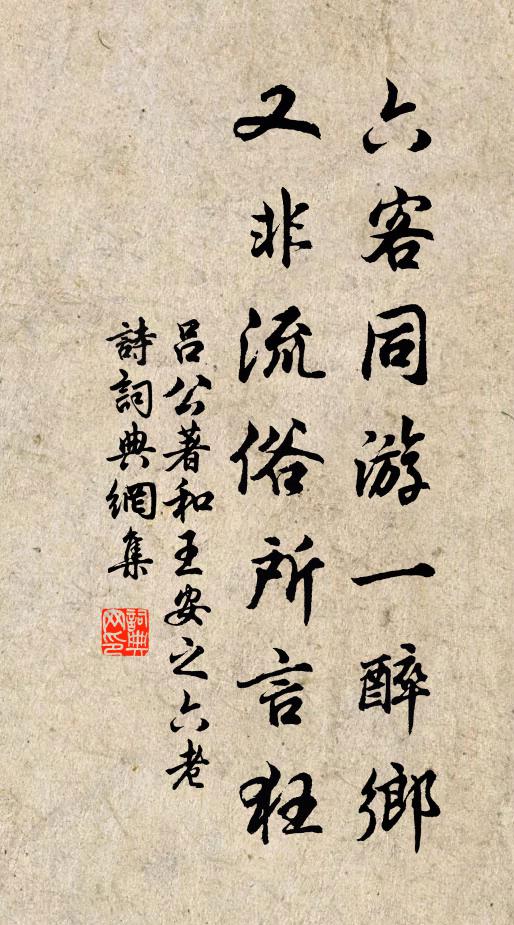 六客同游一醉鄉
又非流俗所言狂
呂公著和王安之六老
詩詞典網集
詞典
网印